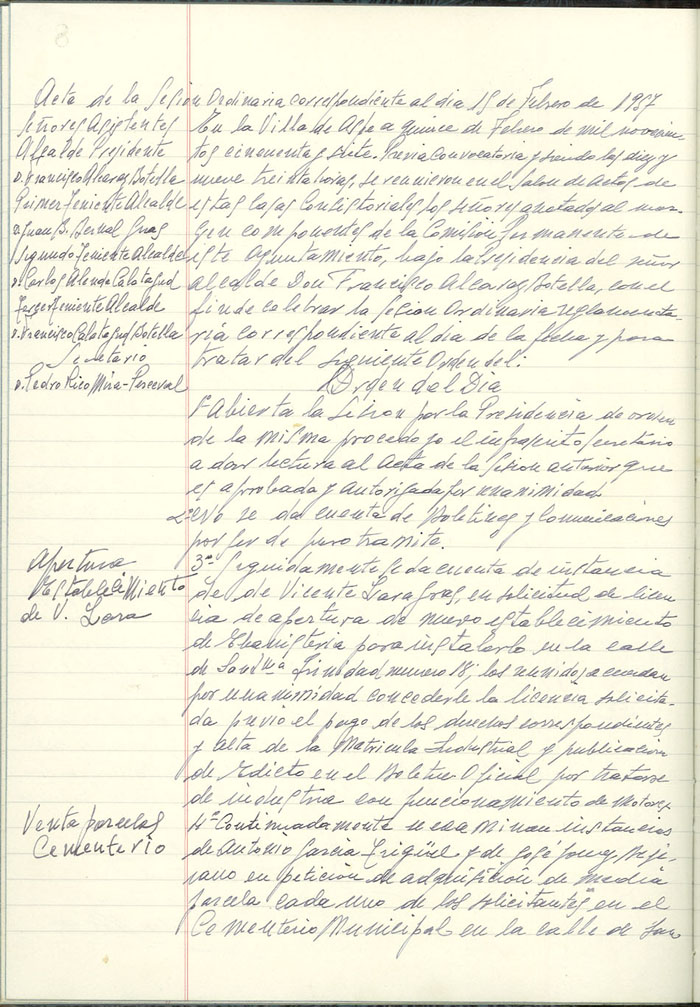 8
Acta de la Sesion Ordinaria correspondiente al dia 15 de Febrero de 1957
Señores Asistentes
Alcalde Presidente
D. Francisco Alcaraz Botella
Primer Teniente Alcalde
D. Juan B. Bernal Gras
Segundo Teniente Alcalde
D. Carlos Alenda Calatayud
Tercer Teniente Alcalde
D. Francisco Calatayud Botella
Secretario
D. Pedro Rico Mira-Perceval
En la Villa de Aspe a quince de Febrero de mil novecien-
tos cincuenta y siete. Previa Convocatoria y siendo las diez y
nueve treinta horas, se reunieron en el Salon de Actos de
estas Casas Consistoriales los señores anotados al mar-
gen componentes de la Comision Permanente de
este Ayuntamiento, bajo la Presidencia del señor
alcalde Don Francisco Alcaraz Botella, con el
fin de celebrar la Sesion Ordinaria reglamenta-
ria correspondiente al dia de la fecha y para
tratar del siguiente Orden del:
Orden del Dia
1º Abierta la Sesion por la Presidencia de orden
de la misma procedo yo el infrascrito Secretario
a dar lectura al Acta de la Sesion anterior que
es aprobada y autorizada por unanimidad.
2º No se da cuenta de Boletines y Comunicaciones
por ser de puro tramite.
Apertura
Establecimiento
de V. Lara
3º Seguidamente se da cuenta de instancia
de de Vicente Lara Gras, en solicitud de licen-
cia de apertura de nuevo establecimiento
de Ebanisteria para instalarlo en la calle
de Santma Trinidad, numero 18; los reunidos acuerdan
por unanimidad concederle la licencia solicita-
da previo el pago de los derechos correspondientes,
y alta de la Matricula Industrial y publicacion
de Edicto en el Boletin Oficial por tratarse
de industria con funcionamiento de motores.
Venta parcelas
Cementerio
4º Continuadamente se examinan instancias
de Antonio Garcia Irigüel y de José Gomez
en peticion de adquisicion de media
parcela cada uno de los solicitantes en el
Cementerio Municipal en la calle de San